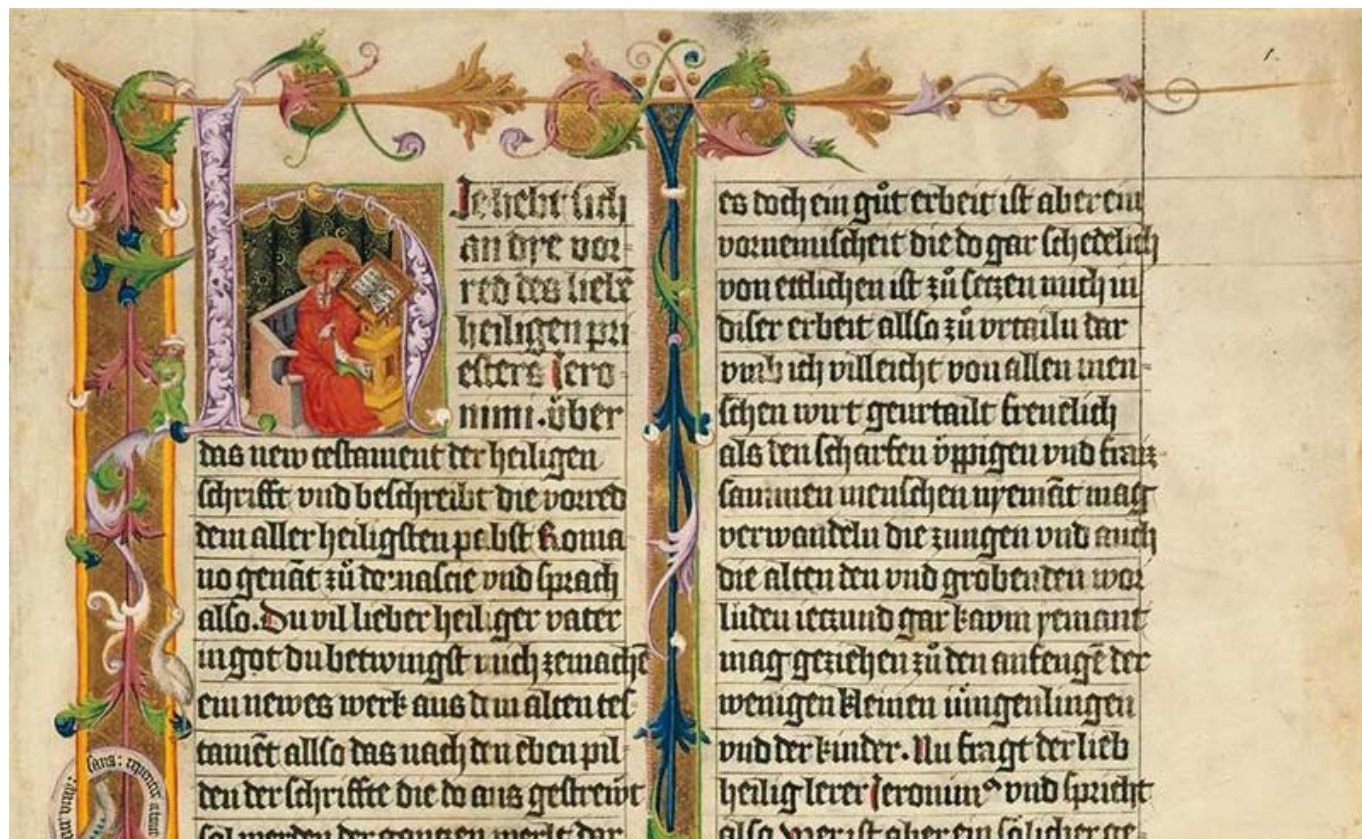 Hie hebt sich
an dye vor-
red des liebē
heiligen pri
esters Jero-
nimi. über
das new testament der heiligen
schrifft vnd beschreibt die vorred
dem aller heiligsten pabst Roma
no genāt zů damascie vnd sprach
also. Du vil lieber heiliger vater
in got du betwingst mich zemachē
ein newes werk aus dem alten tes-
tamēt allso das nach den eben pil-
den der schriffte die do aus gestrewt
sol werden der gantzen werlt dar
es doch ein gůt erbeit ist aber ein
vornemischeit die do gar schedelich
von ettlichen ist zů setzen mich in
diser erbeit allso zů vrtailn dar
vmb ich villeicht von allen men-
schen wirt geurtailt freuelich
als den scharfen üppigen vnd
sammen menschen nyemāt mag
verwandeln die zungen vnd auch
die alten den vnd groben den wor
luden ietzund gar kavm yemant
mag geziehen zů den anfengē der
wenigen kleinen iüngenlingen
vnd der kinder. Nu fragt der lieb
heilig lerer Jeronimꝰ vnd spricht
also wer ist aber ein sölicher ge-